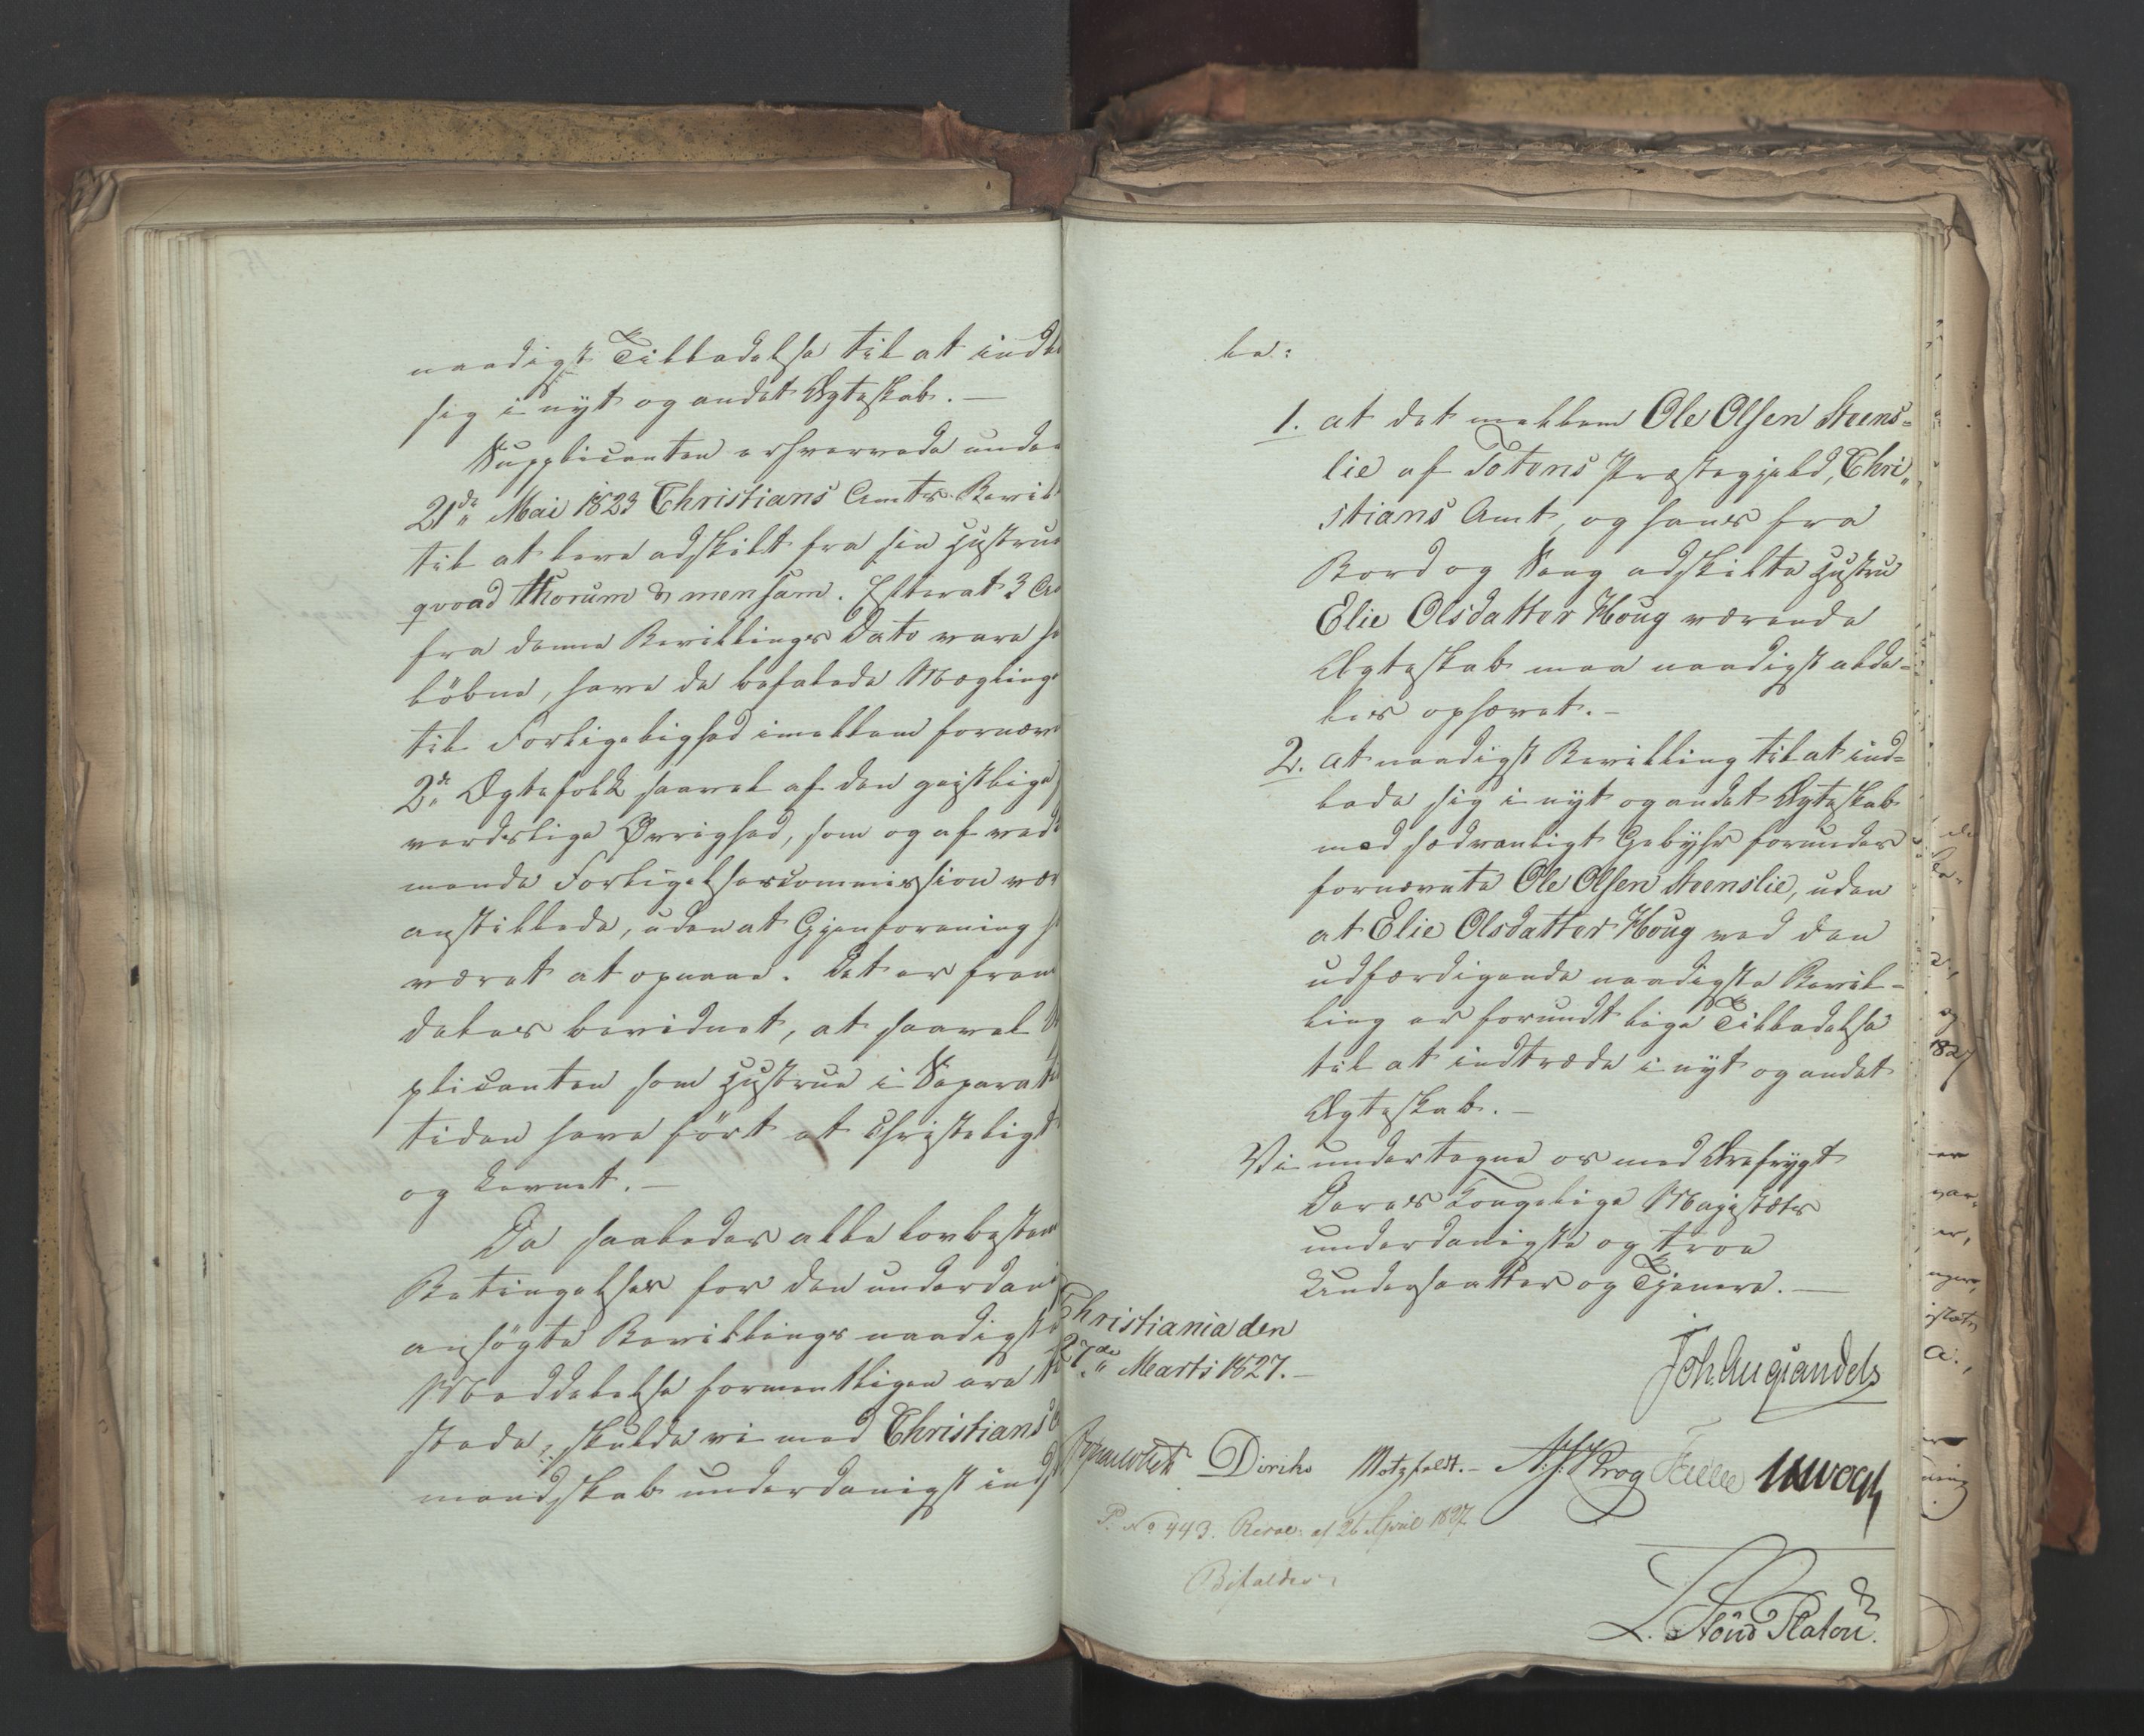 naadigst Tilladelse til at indl
sig i nyt og andet Ægteskab. —
Supplicanten erhvervede unde
21de Mai 1823 Christians Amts Bevil
til at leve adskilt fra sin Hustrue
qvoad thorum & mensam. Efterat 3 Aa
fra denne Bevillings Dato vare for
løbne, have de befalede Mæglinge
til Forligelighed imellem fornævn
2de Ægtefolk saavel af den geistlige
verdslige Øvrighed, som og af vedk
mende Forligelsescommission vær
anstillede, uden at Gjenforening h
været at opnaae. Det er frem
deles bevidnet, at saavel S
plicanten som Hustrue i Separat
tiden have ført et christeligt
og Levnet. —
Da saaledes alle lovbestem
Betingelser for den underdanig
ansøgte Bevillings naadigste
Meddelelse formentligen ere til
stede, skulde vi med Christians A
mandskab underdanigst ind
le:
1. at det mellem Ole Olsen Steens=
lie af Totens Præstegjeld, Chri„
stians Amt, og hans fra
Bord og Seng adskilte Hustru
Elie Olsdatter Houg værende
Ægteskab maa naadigst alde=
les ophævet. —
2. at naadigst Bevilling til at ind=
lade sig i nyt og andet Ægteskab
mod sædvanligt Gebyhr forundes
fornævnte Ole Olsen Steenslie, uden
at Elie Olsdatter Houg ved den
udfærdigende naadigste Bevil=
ling er forundt lige Tilladelse
til at indtræde i nyt og andet
Ægteskab. —
Vi undertegne os med Ærefrygt
Deres Kongelige Majestæts
underdanigste og troe
Undersaatter og Tjenere. —
Christiania den
27de Marts 1827. —
Joh. Aug. Sandels
Jonas Collett Diriks Motzfeldt. — A. J. Krog Fasting
P. No 443. Resol: af 26 April 1827
Bifaldes
L. Stoud Platou.